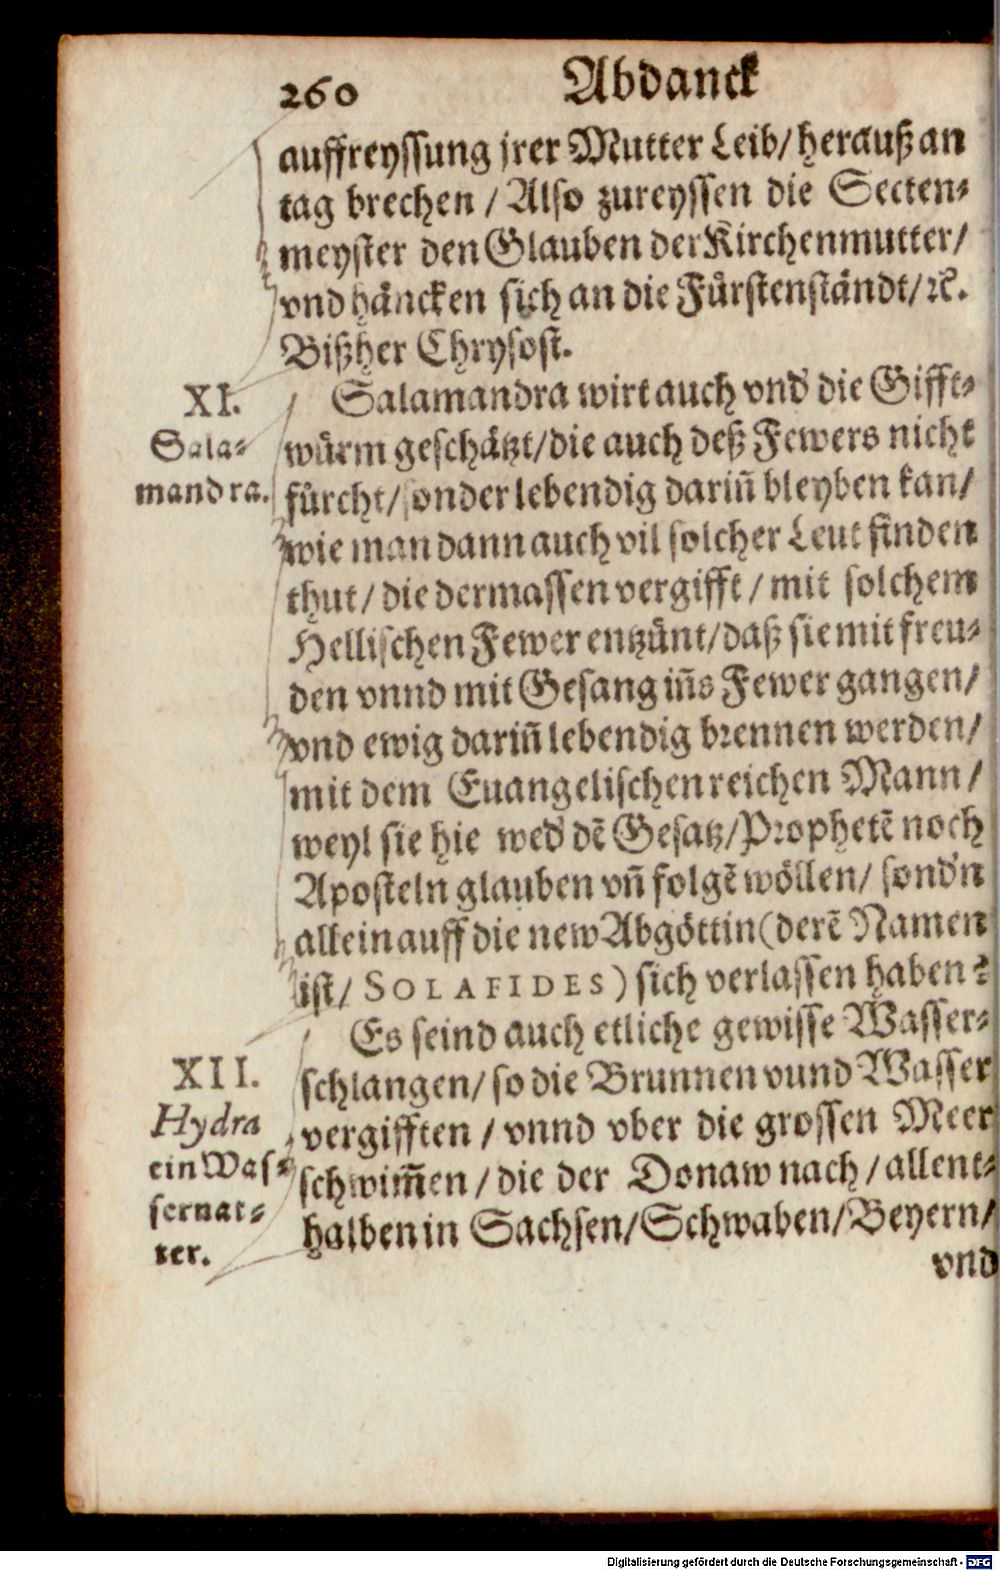 260 Abdanck
auffreyssung jrer Mutter Leib/ herauß an
tag brechen / Also zureyssen die Secten⸗
meyster den Glauben der Kirchenmutter/
vnd häncken sich an die Fürstenständt/ ꝛc.
Bißher Chrysost.
XI.
Sala⸗
mandra.
Salamandra wirt auch vnd' die Gifft⸗
würm geschätzt/ die auch deß Fewers nicht
fürcht/ sonder lebendig dariñ bleyben kan/
wie man dann auch vil solcher Leut finden
thut/ die dermassen vergifft / mit solchem
Hellischen Fewer entzünt/ daß sie mit freu⸗
den vnnd mit Gesang iñs Fewer gangen/
vnd ewig dariñ lebendig brennen werden/
mit dem Euangelischen reichen Mann /
weyl sie hie wed' dē Gesatz/ Prophetē noch
Aposteln glauben vñ folgē wöllen/ sond'n
allein auff die new Abgöttin (derē Namen
ist/ SOLAFIDES) sich verlassen haben?
XII.
Hydra
ein Was⸗
sernat⸗
ter.
Es seind auch etliche gewisse Wasser⸗
schlangen/ so die Brunnen vund Wasser
vergifften / vnnd vber die grossen Meer
schwim̄en / die der Donaw nach / allent⸗
halben in Sachsen/ Schwaben/ Beyern/
vnd
Digitalisierung gefördert durch die Deutsche Forschungsgemeinschaft - DFG